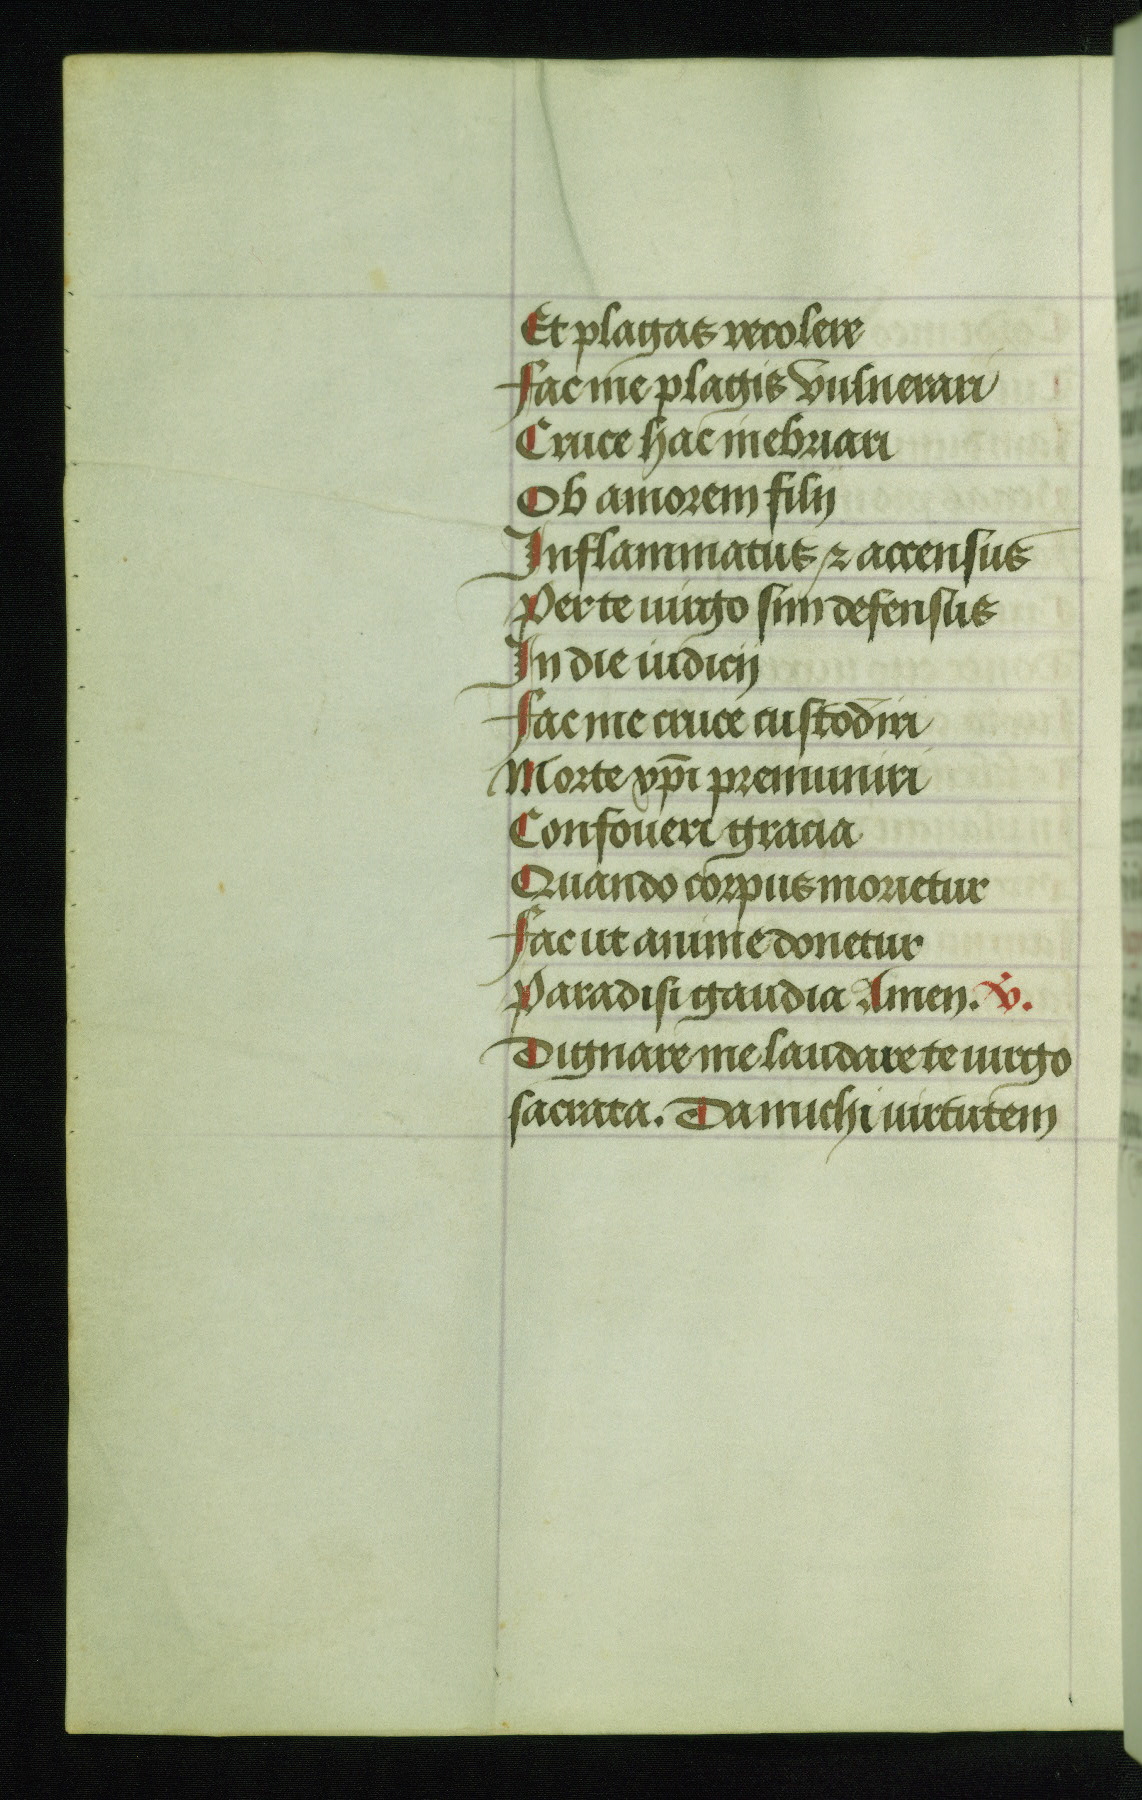 Et plagas recolere
Fac me plagis vulnerari
Cruce hac inebriari
Ob amorem filij
Inflammatus ⁊ accensus
Per te uirgo sim defensus
In die iudicij
Fac me cruce custodiri
Morte xp̄i premuniri
Confoueri gracia
Quando corpus morietur
Fac ut anime donetur
Paradisi gaudia Amen. ℣.
Dignare me laudare te uirgo
sacrata. Da michi uirtutem